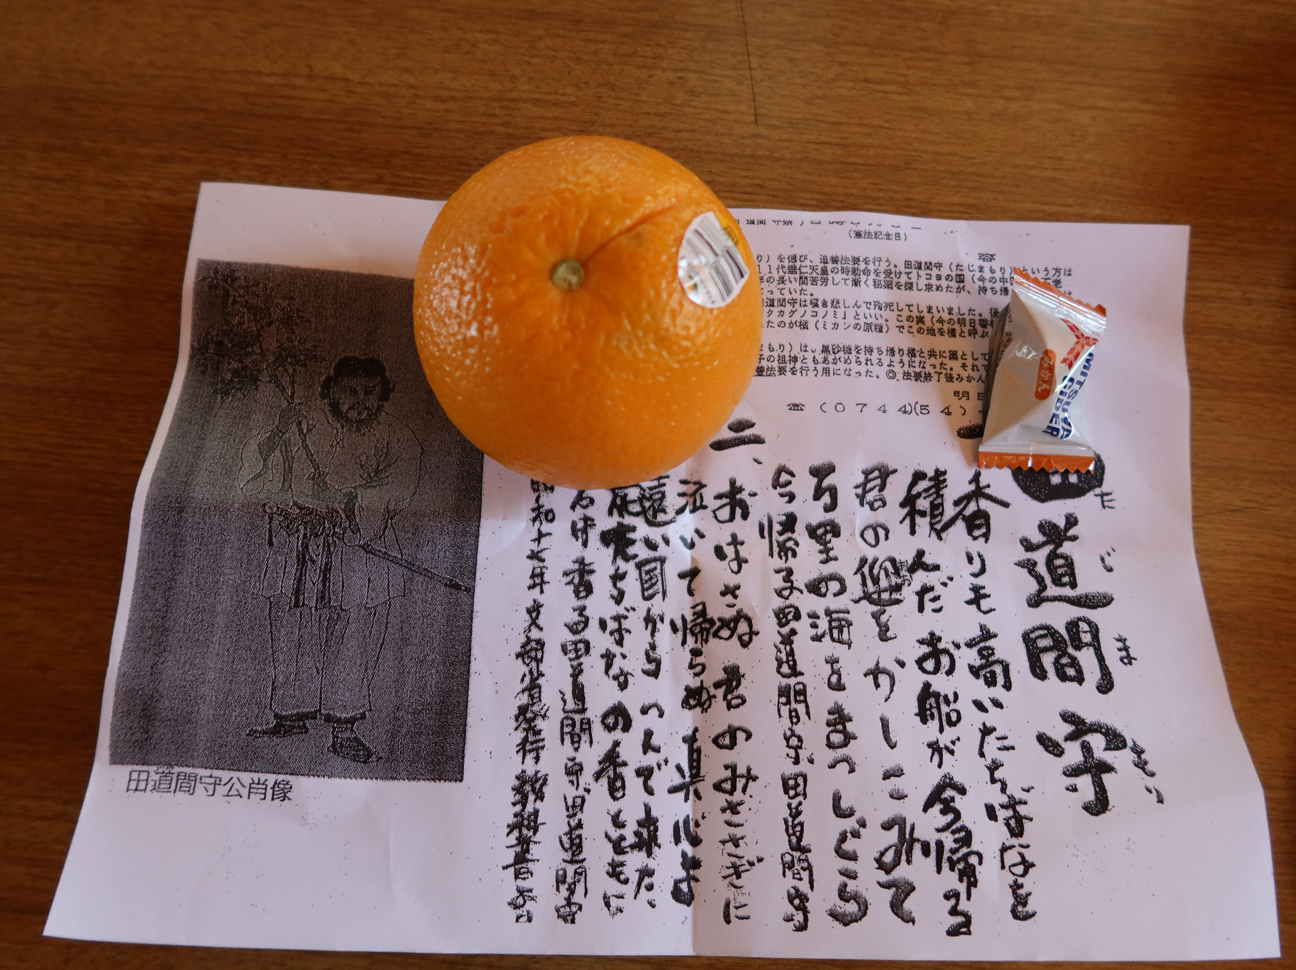 (憲法記念日)
り)を偲び、追善法要を行う。田道間守(たじまもり)という方は
11代垂仁天皇の時勅命を受けてトコヨの国(今の中
年の長い間苦労して漸く秘薬を探し求めたが、持ち帰
っていた。
道間守は嘆き悲しんで殉死してしまいました。後
クカグノコノミ」といい。この実(今の明日香
たのが橘(ミカンの原種)でこの地を橘と呼ぶ
まもり)は、黒砂糖を持ち帰り橘と共に薬として
子の祖神ともあがめられるようになった。それで
善法要を行う用になった。◎法要終了後みかん
明日
☎(0744)(54)
道間守
たじまもり
香りも高いたちばなを
積んだお船が今帰る
君の迎をかしこみて
万里の海をまっしぐら
今帰る田道間守田道間守
二、おはさぬ君のみささぎに
泣いて帰らぬ真心よ
遠い国からつんで来た
花たちばなの香とともに
名は香る田道間守田道間守
昭和十七年文部省発行教科書より
田道間守公肖像
MITSUYA CIDER
みかん